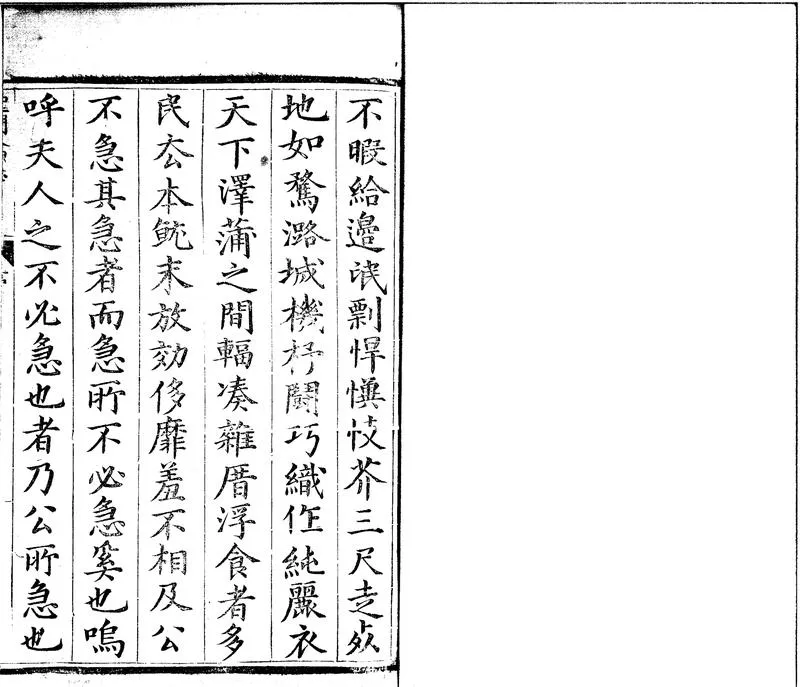 不暇給邊氓剽悍慎忮芥三尺走㱾
地如騖潞城機杼鬪巧織作純麗衣
天下澤蒲之間輻湊雜厝浮食者多
民厺本鮵末放効侈靡羞不相及公
不急其急者而急所不必急奚也嗚
呼夫人之不必急也者乃公所急也